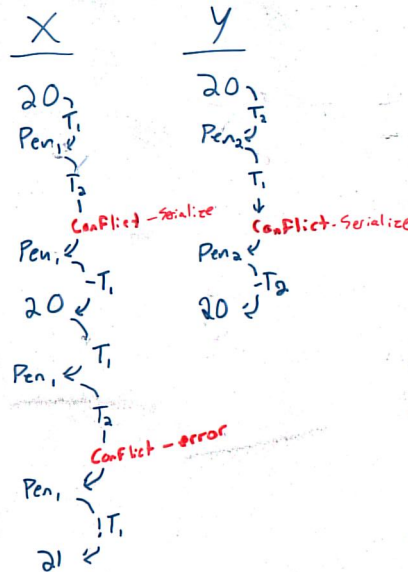 X
20
T₁
Pen₁
T₂
Conflict - Serialize
Pen₁
-T₁
20
T₁
Pen₁
T₂
Conflict - error
Pen₁
!T₁
21
Y
20
T₂
Pen₂
T₁
Conflict - Serialize
Pen₂
-T₂
20